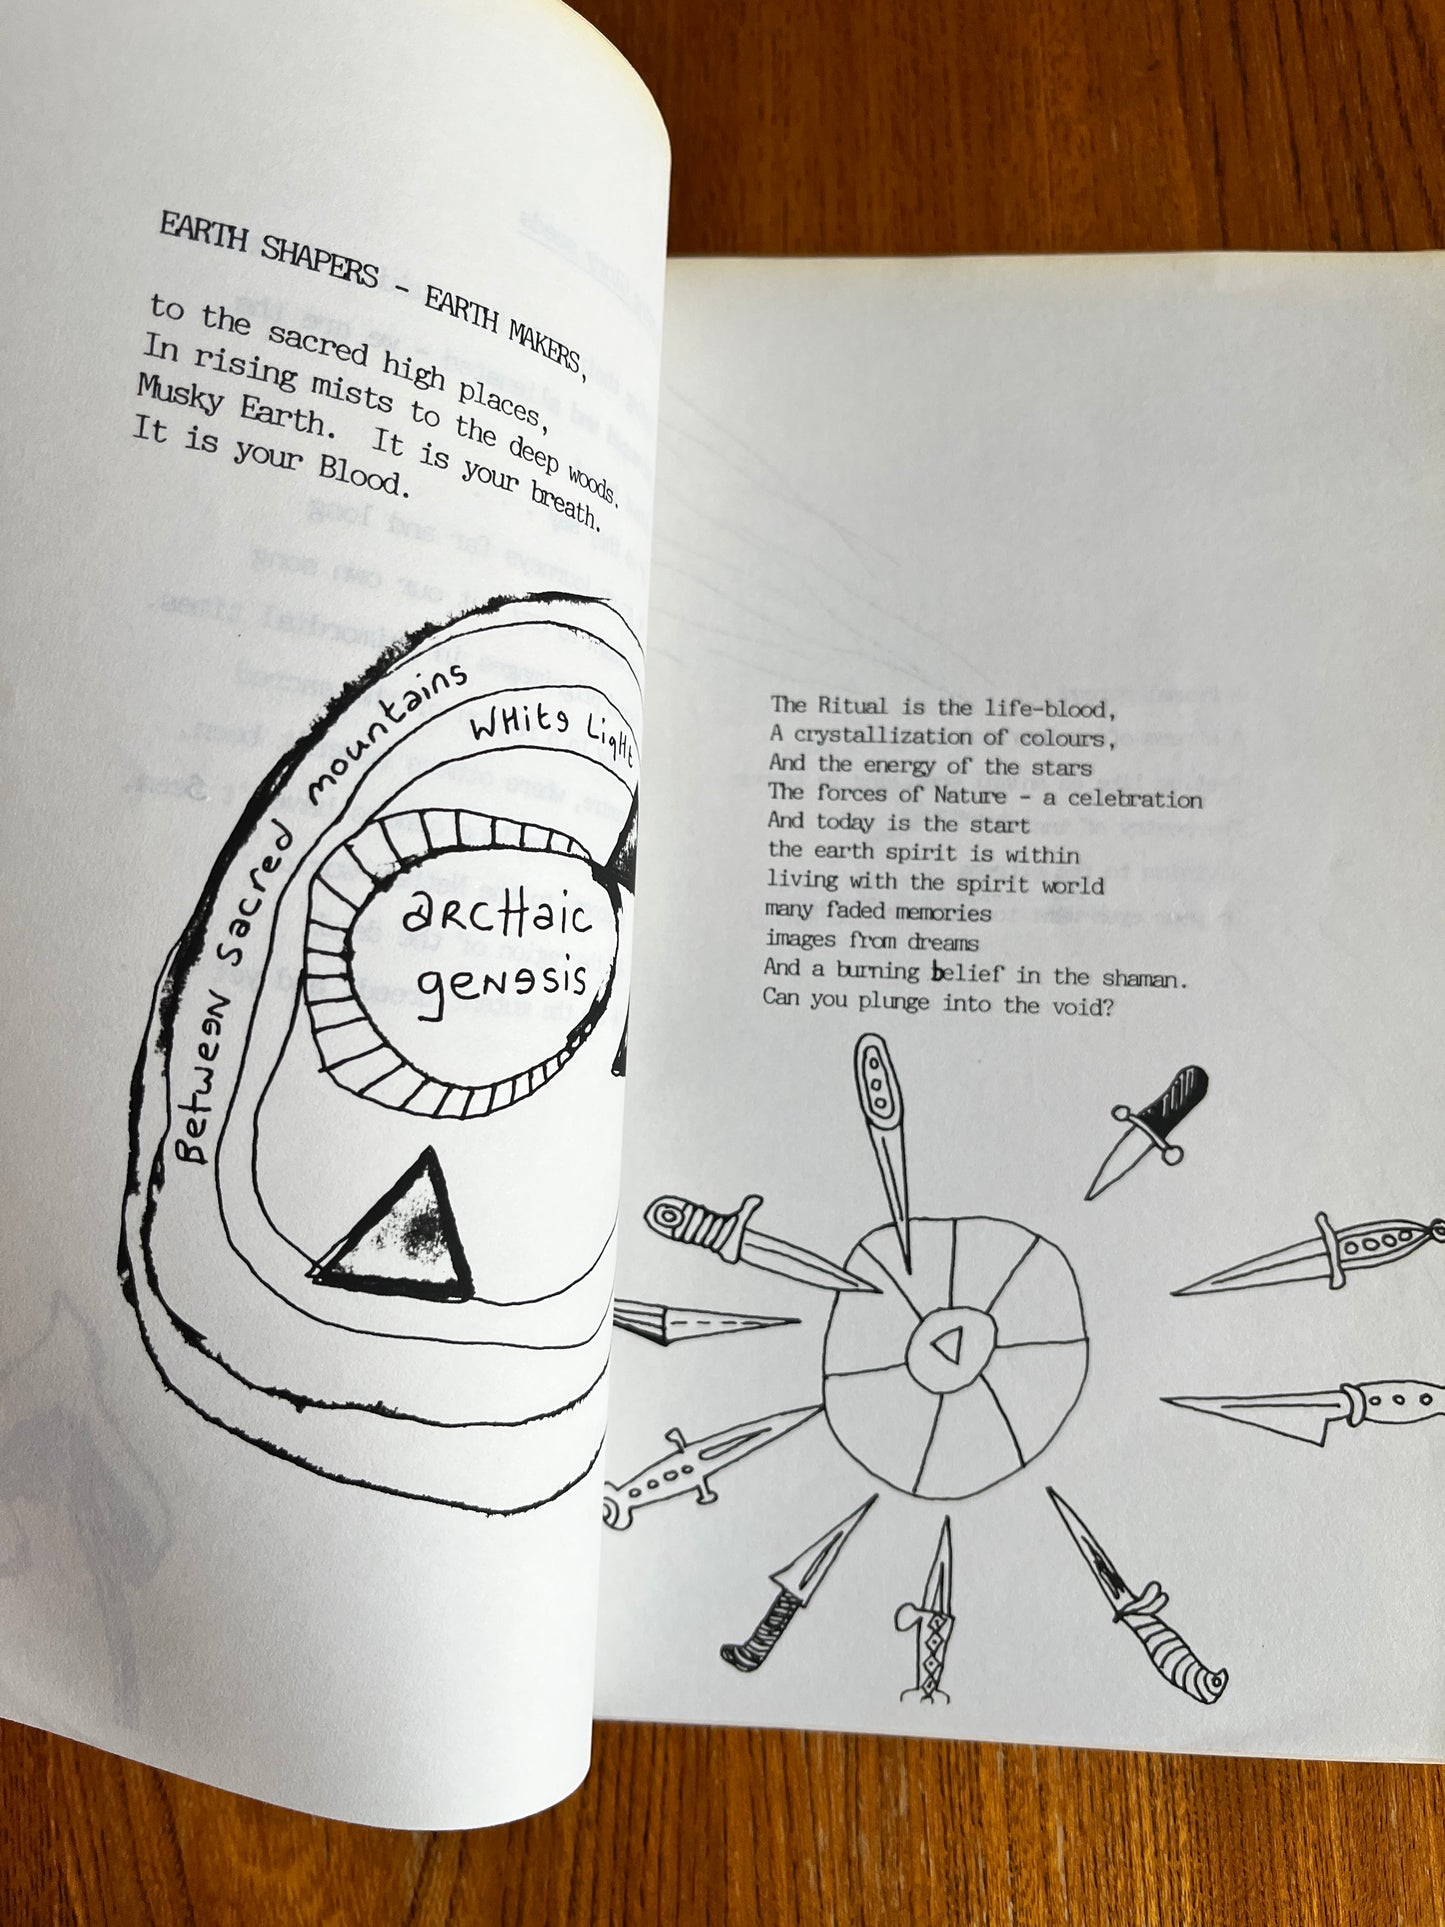 EARTH SHAPERS - EARTH MAKERS,
to the sacred high places,
In rising mists to the deep woods.
Musky Earth.  It is your breath.
It is your Blood.
Between Sacred mountains
White Light
archaic
genesis
The Ritual is the life-blood,
A crystallization of colours,
And the energy of the stars
The forces of Nature - a celebration
And today is the start
the earth spirit is within
living with the spirit world
many faded memories
images from dreams
And a burning belief in the shaman.
Can you plunge into the void?